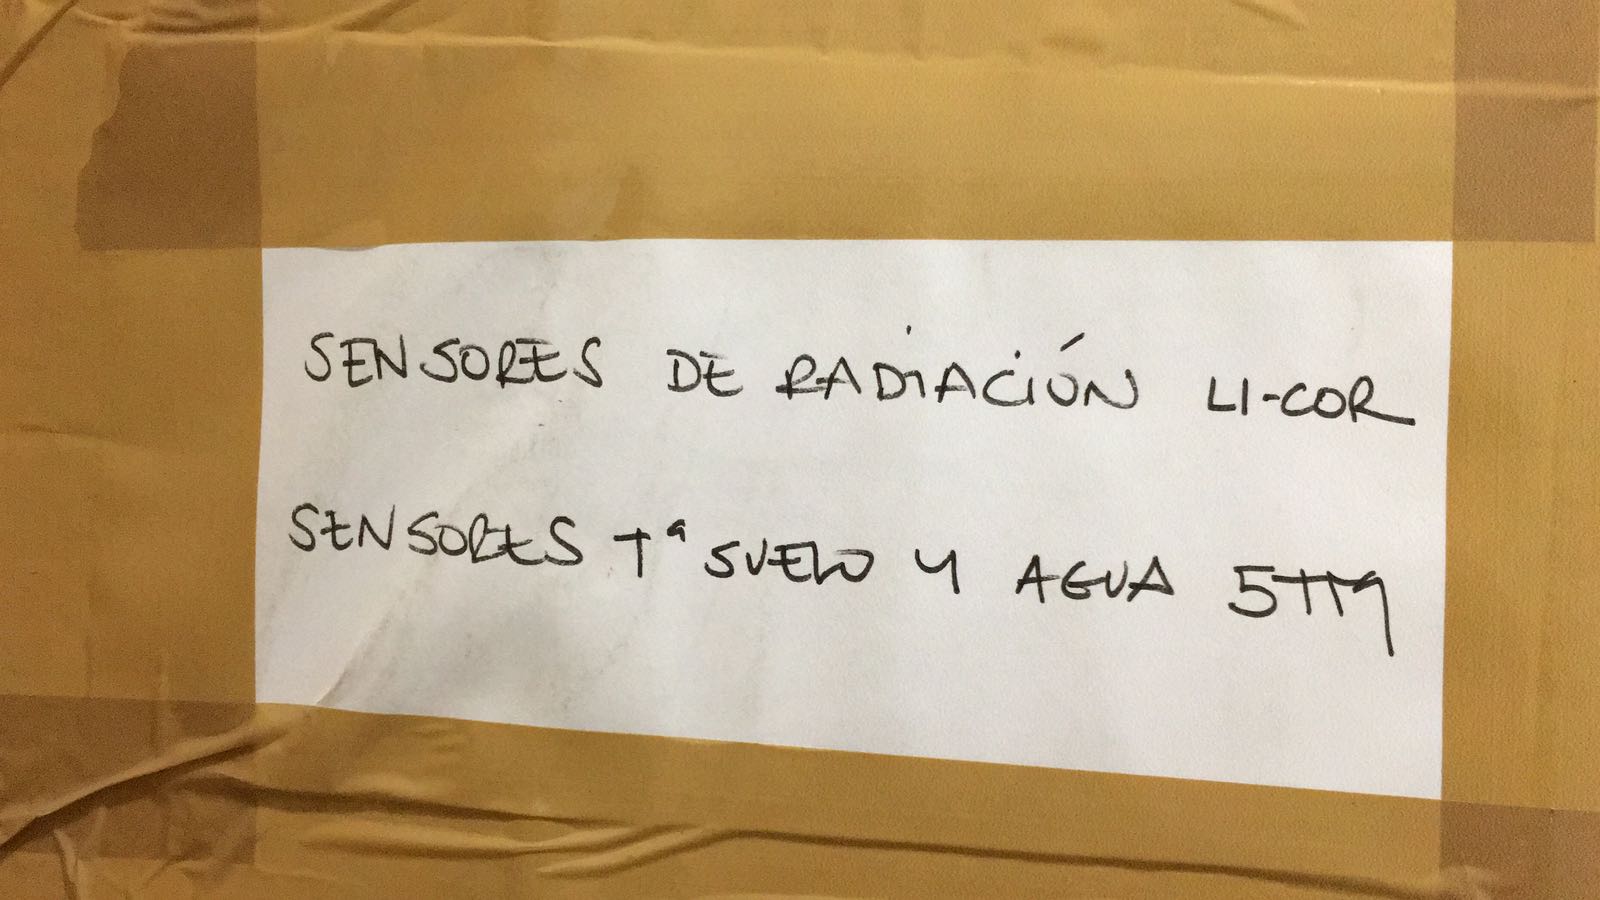 SENSORES DE RADIACIÓN LI-COR
SENSORES Tª SUELO Y AGUA